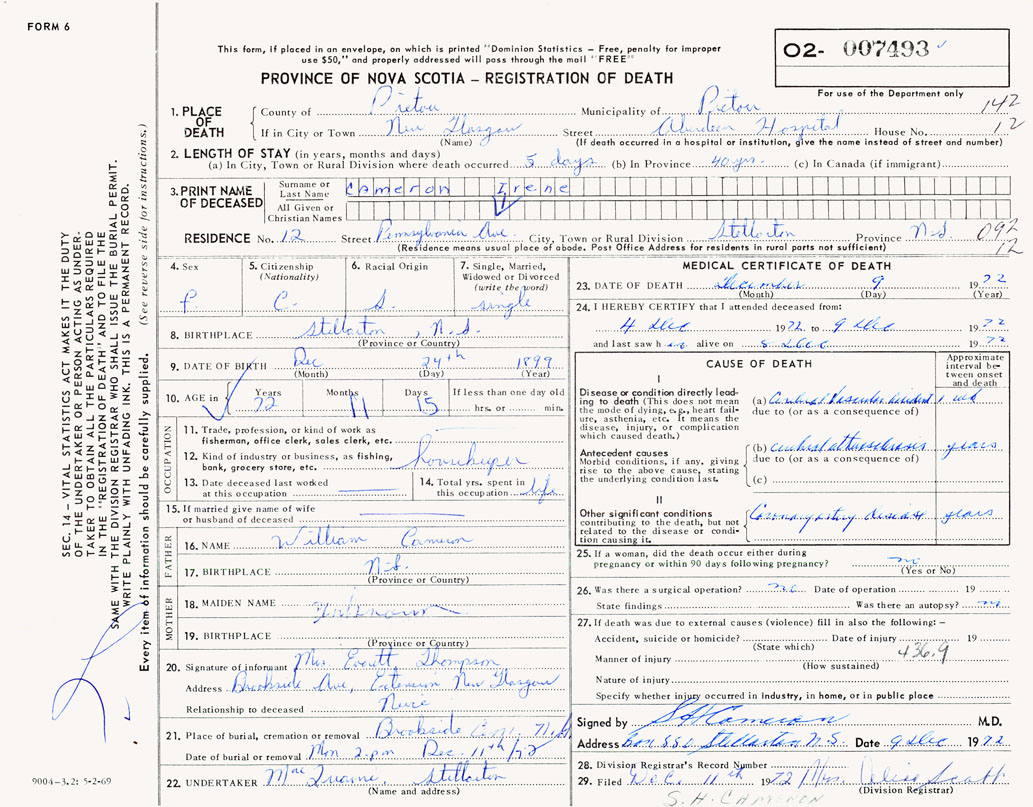 FORM 6
This form, if placed in an envelope, on which is printed "Dominion Statistics – Free, penalty for improper
use $50," and properly addressed will pass through the mail "FREE"
PROVINCE OF NOVA SCOTIA – REGISTRATION OF DEATH
O2- 007493
For use of the Department only
142
12
1. PLACE OF DEATH
County of Pictou Municipality of Pictou
If in City or Town New Glasgow Street Aberdeen Hospital House No.
(Name) (If death occurred in a hospital or institution, give the name instead of street and number)
2. LENGTH OF STAY (in years, months and days)
(a) In City, Town or Rural Division where death occurred 5 days (b) In Province 40 yrs. (c) In Canada (if immigrant)
3. PRINT NAME OF DECEASED
Surname or Last Name Cameron Irene
All Given or Christian Names
RESIDENCE No. 12 Street Pennsylvania Ave. City, Town or Rural Division Stellarton Province N.S.
092
12
(Residence means usual place of abode. Post Office Address for residents in rural parts not sufficient)
4. Sex
F.
5. Citizenship (Nationality)
C.
6. Racial Origin
S.
7. Single, Married, Widowed or Divorced (write the word)
single
8. BIRTHPLACE Stellarton, N.S.
(Province or Country)
9. DATE OF BIRTH Dec 24th 1899
(Month) (Day) (Year)
10. AGE in Years 72 Months 11 Days 15 If less than one day old hrs. or min.
OCCUPATION
11. Trade, profession, or kind of work as fisherman, office clerk, sales clerk, etc.
12. Kind of industry or business, as fishing, bank, grocery store, etc. housekeeper
13. Date deceased last worked at this occupation
14. Total yrs. spent in this occupation life
15. If married give name of wife or husband of deceased
FATHER
16. NAME William Cameron
17. BIRTHPLACE N.S.
(Province or Country)
MOTHER
18. MAIDEN NAME Unknown
19. BIRTHPLACE
(Province or Country)
20. Signature of informant Mrs. Everett Thompson
Address Brookside Ave, Extension New Glasgow
Relationship to deceased Niece
21. Place of burial, cremation or removal Brookside Cem.
Date of burial or removal Mon 2 p.m. Dec. 11th/72
22. UNDERTAKER Stellarton
(Name and address)
MEDICAL CERTIFICATE OF DEATH
23. DATE OF DEATH December 9 1972
(Month) (Day) (Year)
24. I HEREBY CERTIFY that I attended deceased from:
4 Dec 1972 to 9 Dec 1972
and last saw h er alive on 8 Dec 1972
CAUSE OF DEATH
Approximate interval between onset and death
I
Disease or condition directly leading to death (This does not mean the mode of dying, e.g., heart failure, asthenia, etc. It means the disease, injury, or complication which caused death.)
(a) Cerebral Vascular Accident 1 wk
due to (or as a consequence of)
Antecedent causes
Morbid conditions, if any, giving rise to the above cause, stating the underlying condition last.
(b) cerebral atherosclerosis years
due to (or as a consequence of)
(c)
II
Other significant conditions contributing to the death, but not related to the disease or condition causing it.
Coronary artery disease years
25. If a woman, did the death occur either during pregnancy or within 90 days following pregnancy? no
(Yes or No)
26. Was there a surgical operation? no Date of operation 19
State findings Was there an autopsy? no
27. If death was due to external causes (violence) fill in also the following: –
Accident, suicide or homicide? Date of injury 19
(State which)
436.9
Manner of injury
(How sustained)
Nature of injury
Specify whether injury occurred in industry, in home, or in public place
Signed by S H Cameron M.D.
Address Box 880 Stellarton N.S. Date 9 Dec 1972
28. Division Registrar's Record Number
29. Filed Dec. 11th 1972 Mrs. Alice Scott
(Division Registrar)
S. H. CAMERON
SEC. 14 – VITAL STATISTICS ACT MAKES IT THE DUTY
OF THE UNDERTAKER OR PERSON ACTING AS UNDER-
TAKER TO OBTAIN ALL THE PARTICULARS REQUIRED
IN THE "REGISTRATION OF DEATH" AND TO FILE THE
SAME WITH THE DIVISION REGISTRAR WHO SHALL ISSUE THE BURIAL PERMIT.
WRITE PLAINLY WITH UNFADING INK. THIS IS A PERMANENT RECORD.
Every item of information should be carefully supplied. (See reverse side for instructions.)
9004-3.2: 5-2-69